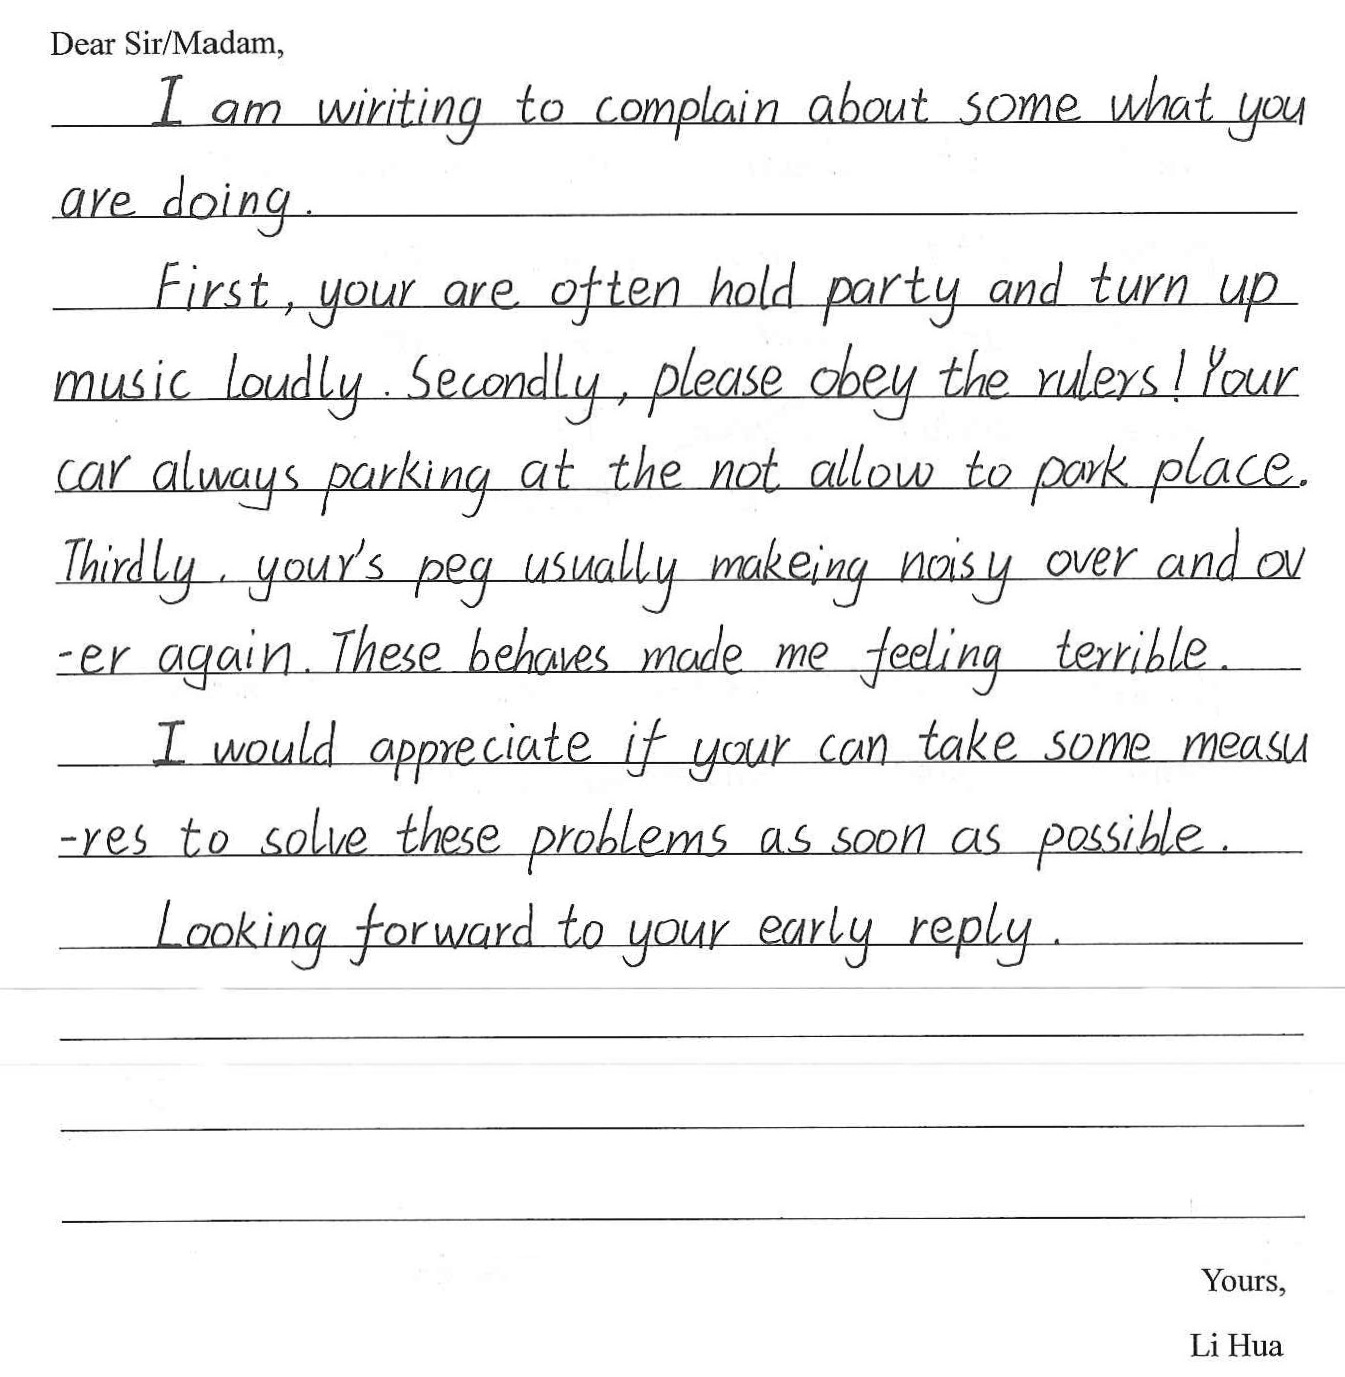 Dear Sir/Madam,
I am wiriting to complain about some what you
are doing.
First, your are often hold party and turn up
music loudly. Secondly, please obey the rulers! Your
car always parking at the not allow to park place.
Thirdly, your's peg usually makeing noisy over and ov
-er again. These behaves made me feeling terrible.
I would appreciate if your can take some measu
-res to solve these problems as soon as possible.
Looking forward to your early reply.
Yours,
Li Hua